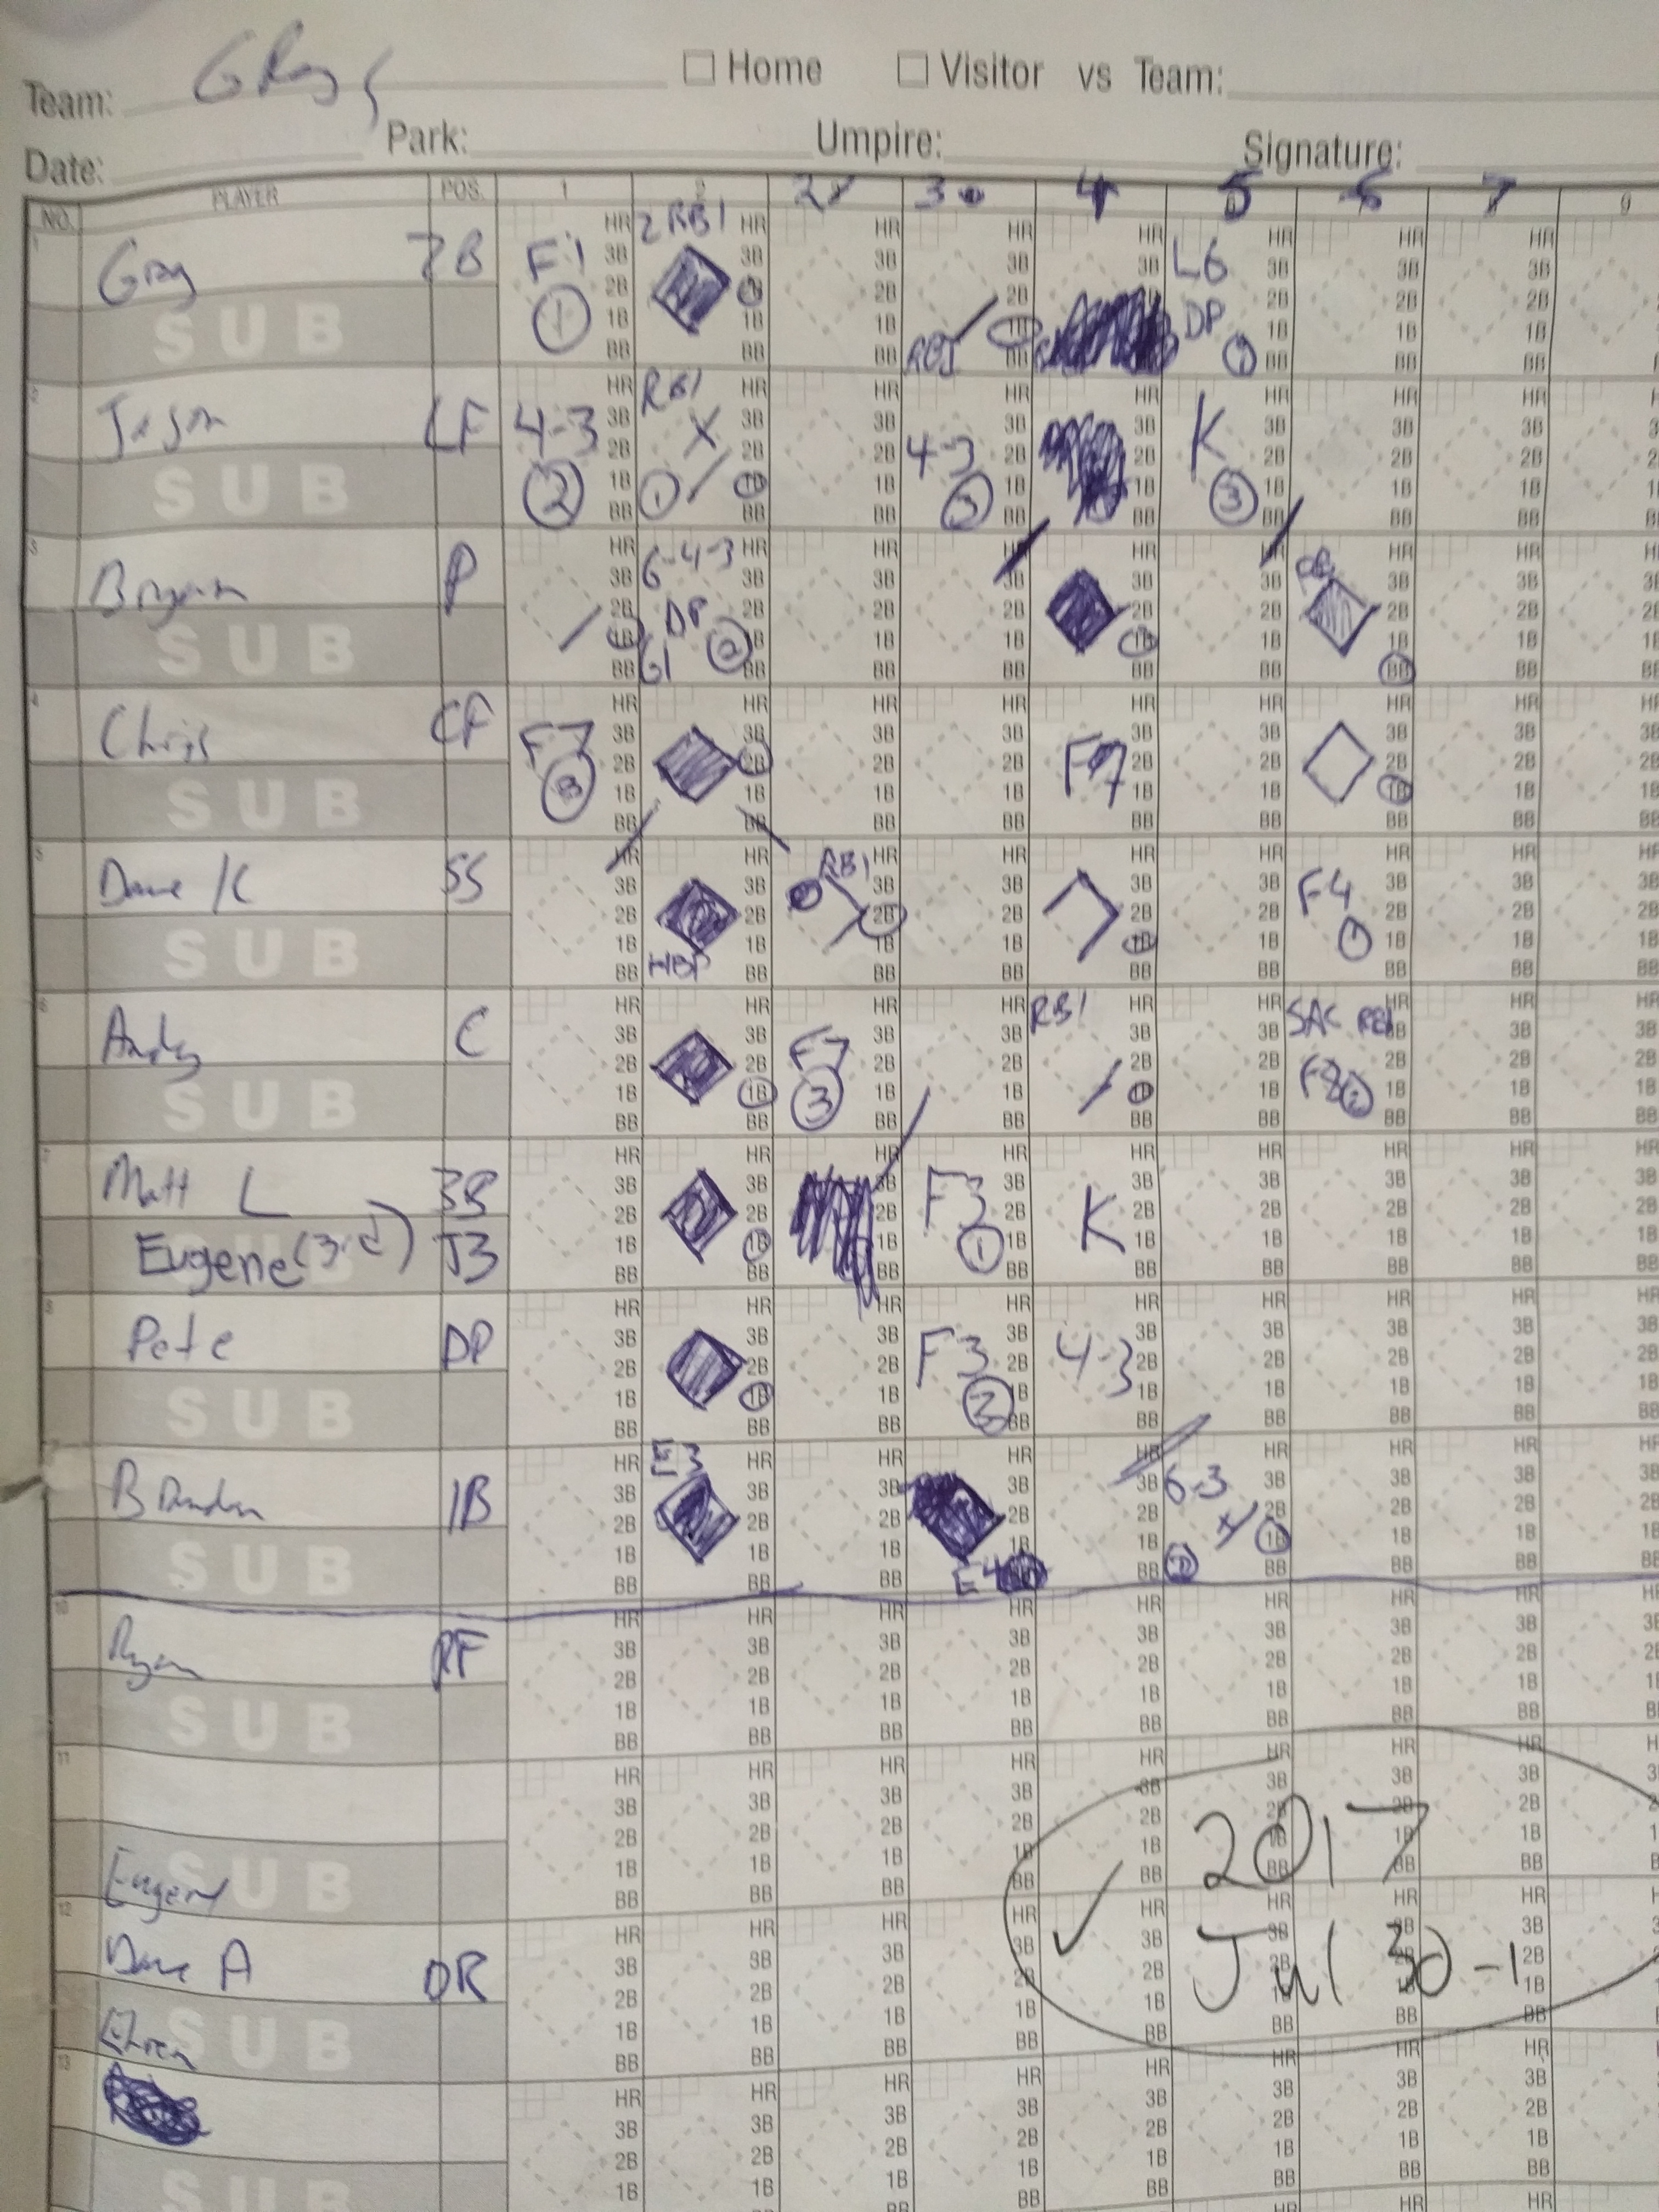 Team: GRays
☐ Home ☐ Visitor vs Team:
Date: Park: Umpire: Signature:
NO. PLAYER POS. 1 2 2 3 4 5 6 7 9
1 Greg 2B F1 ① 2 RBI RBI L6 DP ①
SUB
2 Jason LF 4-3 ② RBI X ① 4-3 ③ K ③
SUB
3 Bryan P 6-4-3 DP ②
SUB
4 Chris CF F7 ③ F9
SUB
5 Dave K SS HBP RBI F4 ①
SUB
6 Andy C F7 ③ RBI SAC RBI F8 ②
SUB
7 Matt L 3B F3 ① K
Eugene (3rd)
8 Pete DP F3 ② 4-3
SUB
Brandon 1B E3 E4 6-3 ②
SUB
10 Ryan RF
SUB
11
Eugene SUB
12 Dave A DR
Ehren SUB
13
SUB
HR
3B
2B
1B
BB
2017
✓ Jul 30-1